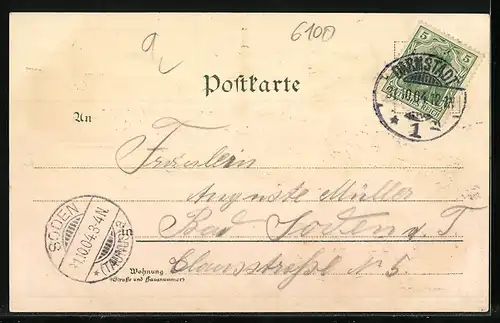 6100
2
5 5
DARMSTADT
31.10.04.12-1N
* 1
Postkarte
An
Fräulein
Auguste Müller
in Bad Soden a. T.
SODEN
31.10.04.3-4N
* (TAUNUS)
Wohnung
(Straße und Hausnummer)
N 5.